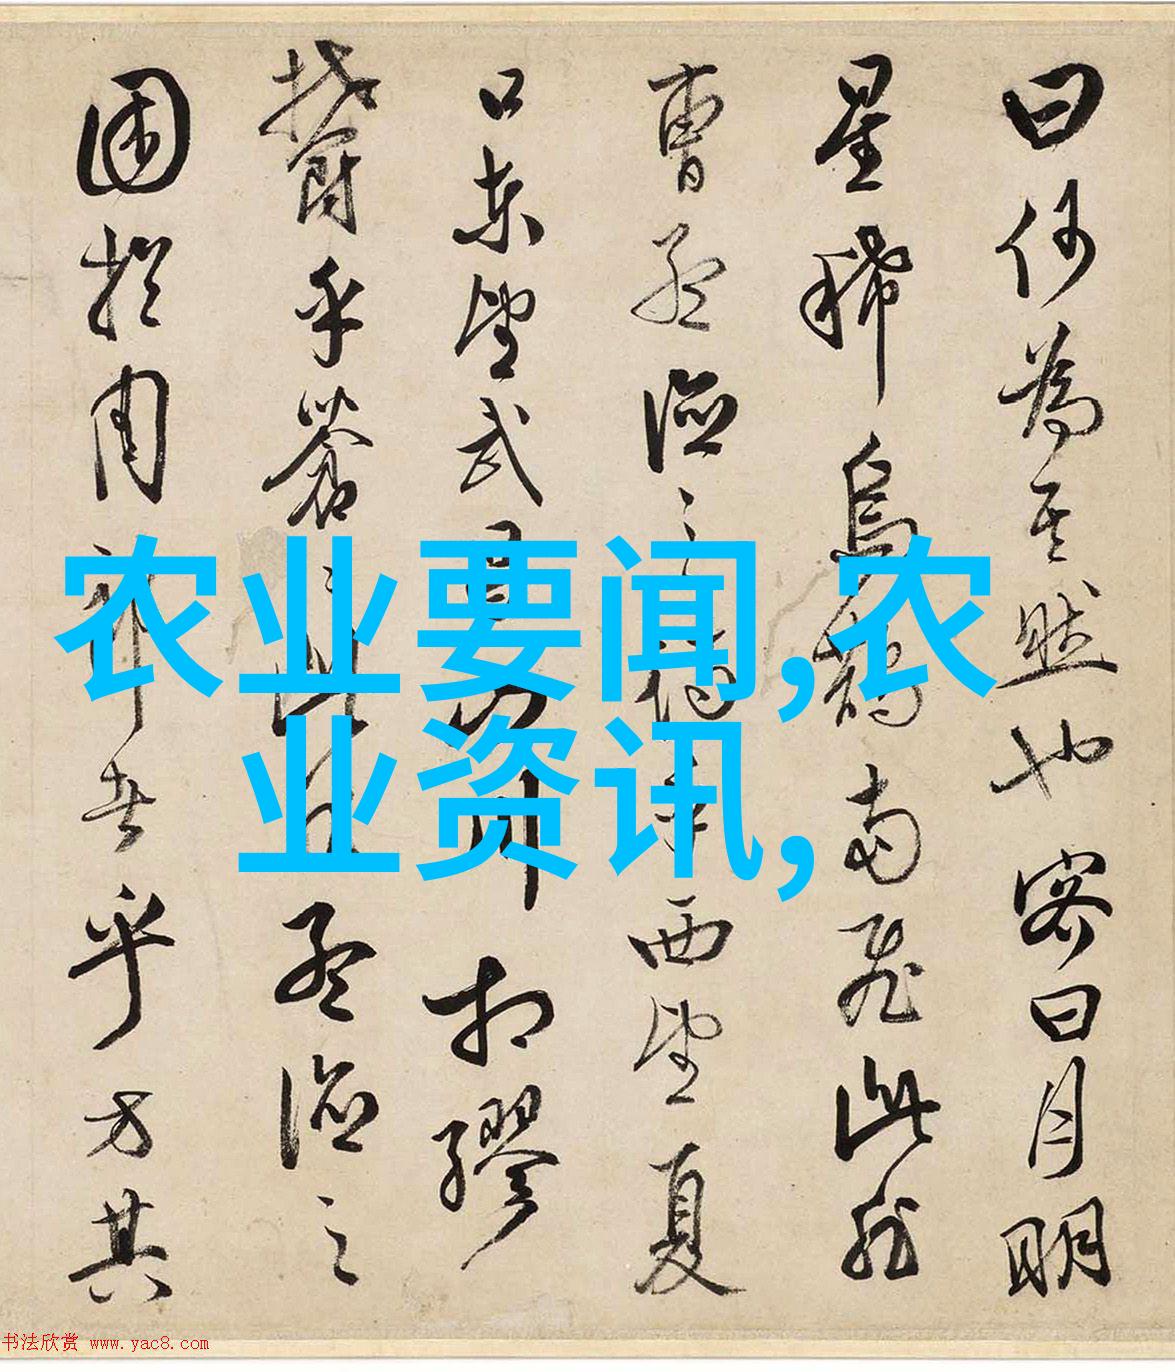 曰何為其然也客曰月明
星稀烏鵲南飛此非
曹孟德之詩乎西望夏
口東望武昌山川相繆
鬱乎蒼〻此非孟德之
困於周郎者乎方其
农业要闻,农
业资讯,
书法欣赏 www.yac8.com